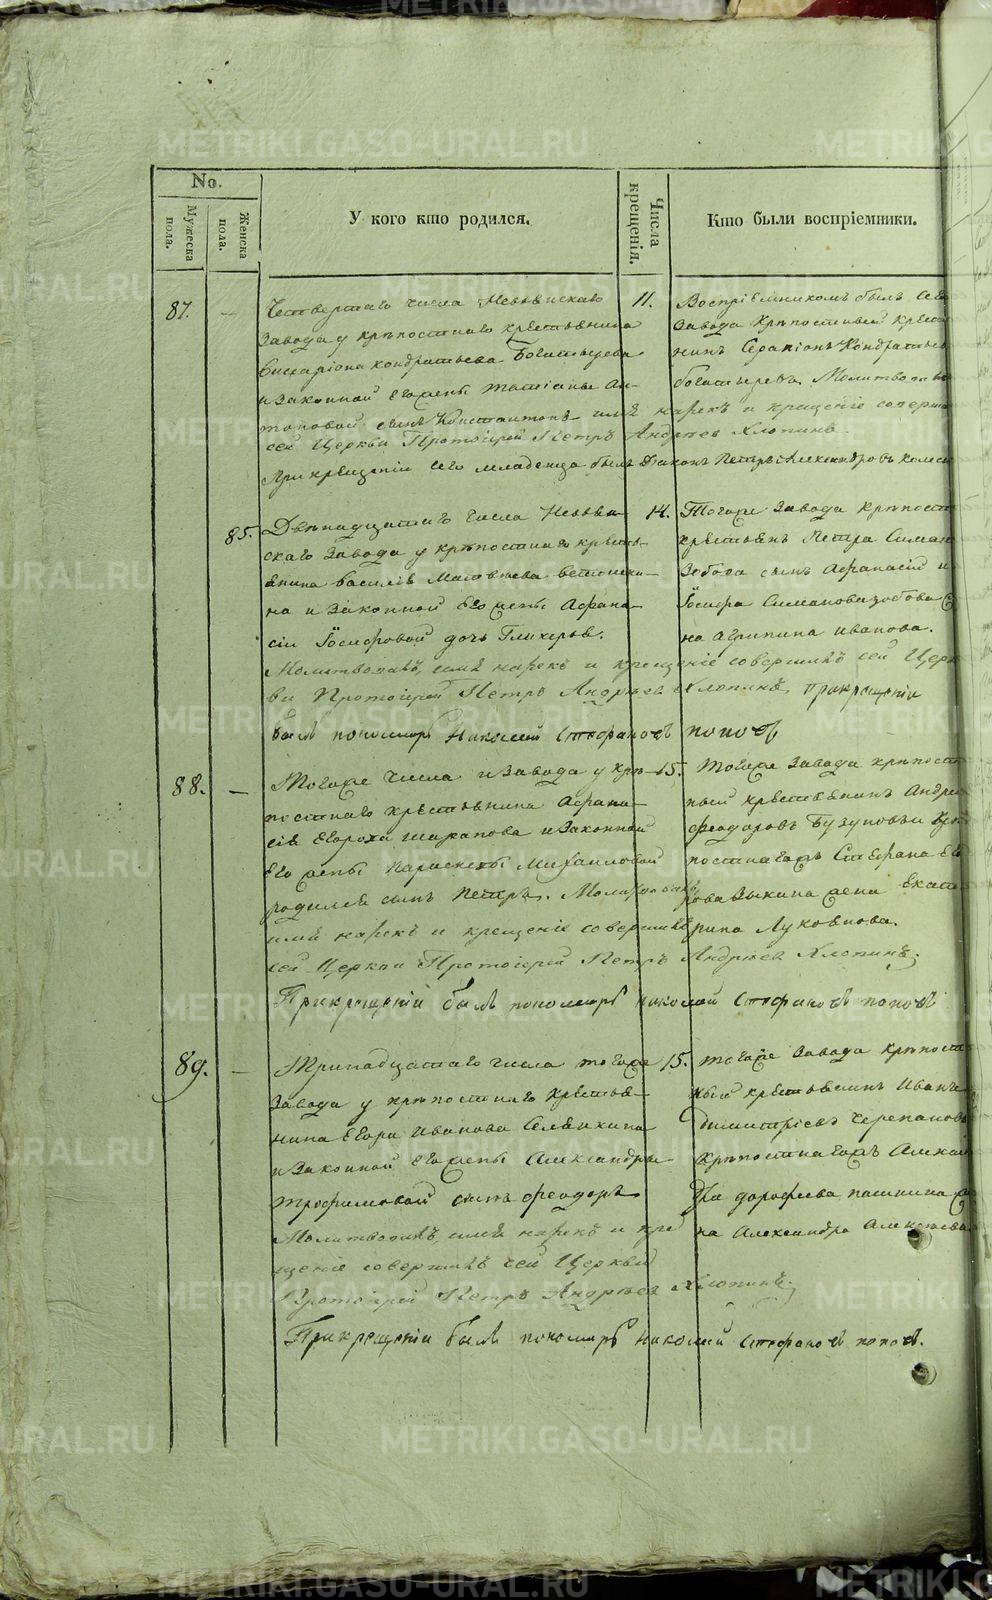 No.
Мужеска пола.
Женска пола.
У кого кто родился.
Числа крещенія.
Кто были воспріемники.
87.
—
Четвертаго числа Невьянскаго
завода у крѣпостнаго крестьянина
Кондратьева Богатырева
и законной его жены Татіаны Ан-
тоновой сынъ Константинъ имя нарекъ и крещеніе соверши
сей Церкви Протоіерей Петръ Андреев Хлопинъ.
При крещеніи сего младенца былъ Діаконъ Петръ Александровъ
11.
Воспріемникомъ былъ сего
завода крѣпостный крестья
нинъ Серапіонъ Кондратьев
богатыревъ. Молитвовалъ
85.
Двенадцатаго числа Невьян-
скаго завода у крѣпостнаго кресть-
янина Василія Матвѣева
на и законной его жены Афана-
сіи Іосифовой дочь Гликерья.
Молитвовалъ, имя нарекъ и крещеніе совершилъ сей Церк
ви Протоіерей Петръ Андреев Хлопинъ, при крещеніи
былъ пономарь Николай Стефановъ поповъ
14.
Тогоже завода крѣпостн
крестьян Петра Симан
Зобова сынъ Афанасій и
Іосифа Симанова зобова
на Агрипина иванова.
88.
—
Тогоже числа и завода у крѣ-
постнаго крестьянина Афана-
сія Шарапова и законной
его жены Параскевы Михайловой
родился сынъ Петръ. Молитвовалъ,
имя нарекъ и крещеніе совершилъ
сей Церкви Протоіерей Петръ Андреев Хлопинъ,
При крещеніи былъ пономарь николай стефановъ поповъ
15.
Тогоже завода крѣпост
ный крестьянинъ Андрей
феодоровъ Бузуновъ и крѣ
постнагожъ Стефана Его
рова Быкина жена Екате
рина Луковнова.
89.
—
Тринадцатаго числа тогоже
завода у крѣпостнаго крестья-
нина Егора Иванова Селянкина
и законной его жены Александры
трофимовой сынъ феодоръ.
Молитвовалъ, имя нарекъ и кре
щеніе совершилъ сей Церкви
Протоіерей Петръ Андреев Хлопинъ.
При крещеніи былъ пономарь николай стефановъ поповъ.
15.
тогоже завода крѣпост
ный крестьянинъ Иванъ
димитріевъ Черепановъ
крѣпостнагожъ Алексан
дра дорофѣева пашнина
на Александра Алексѣева
METRIKI.GASO-URAL.RU